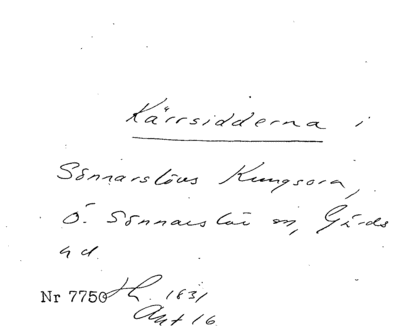 Kärrsidderna i
Sönnarslövs Kungsora,
Ö. Sönnarslöv sn, Gärds
hd
Nr 7750 1831
Akt 16